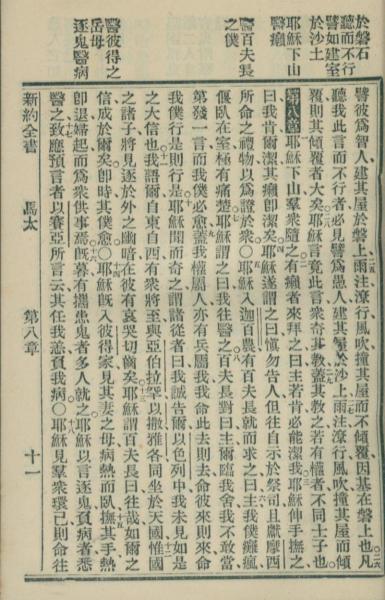 於磐石
聽而不行
譬如建室
於沙土
耶穌下山
醫癩
醫百夫長
之僕
醫彼得之
岳母
逐鬼醫病
譬彼為智人建其屋於磐上雨注潦行風吹撞其屋而不傾覆因基在磐上也凡
聽我此言而不行者必見譬為愚人建其屋於沙上雨注潦行風吹撞其屋而傾
覆則其傾覆者大矣耶穌言竟此言衆奇其教蓋其教之若有權者不同士子也
第八章 耶穌下山羣衆隨之有癩者來拜之曰主若肯必能潔我耶穌伸手撫之
曰我肯爾潔其癩卽潔矣耶穌遂謂之曰慎勿告人但往自示於祭司且獻摩西
所命之禮物以為證於衆○耶穌入迦百農有百夫長就而求之曰主我僕癱瘋
偃臥在室極有痛楚耶穌謂之曰我往醫之百夫長對曰主爾臨我舍我不敢當
第發一言而我僕必愈蓋我權屬人亦有兵屬我我命此去則去命彼來則來命
我僕行是則行是耶穌聞而奇之謂諸從者曰我誠告爾以色列中我未見如是
之大信也我語爾自東自西有衆將至與亞伯拉罕以撒雅各同坐於天國惟國
之諸子將見逐於外之幽暗在彼有哀哭切齒矣耶穌謂百夫長曰往哉如爾之
信成於爾矣卽時其僕愈○耶穌旣入彼得家見其妻之母病熱而臥撫其手熱
卽退婦起而為衆供事焉旣暮有攜患鬼者多人就之耶穌以言逐鬼負病者悉
醫之致應預言者以賽亞所言云其任我恙負我病○耶穌見羣衆環已則命往
新約全書 馬太 第八章 十一